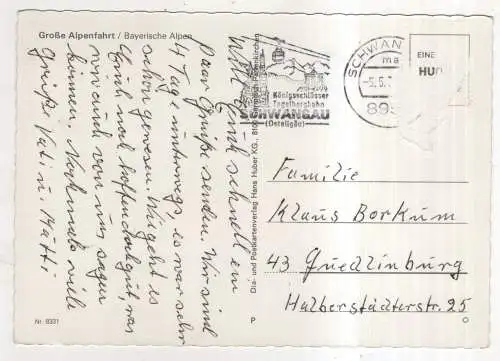 Große Alpenfahrt / Bayerische Alpen
Will Euch schnell ein
paar Grüße senden. Wir sind
4 Tage unterwegs, es war sehr
schön gewesen. Wie geht es
Euch noch hoffendlich gut, was
wir auch von uns sagen
können. Nochmals viele
Grüße Vati u. Mutti
Nr. 9331
Dia- und Postkartenverlag Hans Huber KG., 8100 Garmisch-Partenkirchen
Königsschlösser
Tegelbergbahn
SCHWANGAU
(Ostallgäu)
SCHWAN
ma
-5.6.
895
EINE
HU
Familie
Klaus Borkum
43 Quedlinburg
Halberstädterstr. 25
P
O